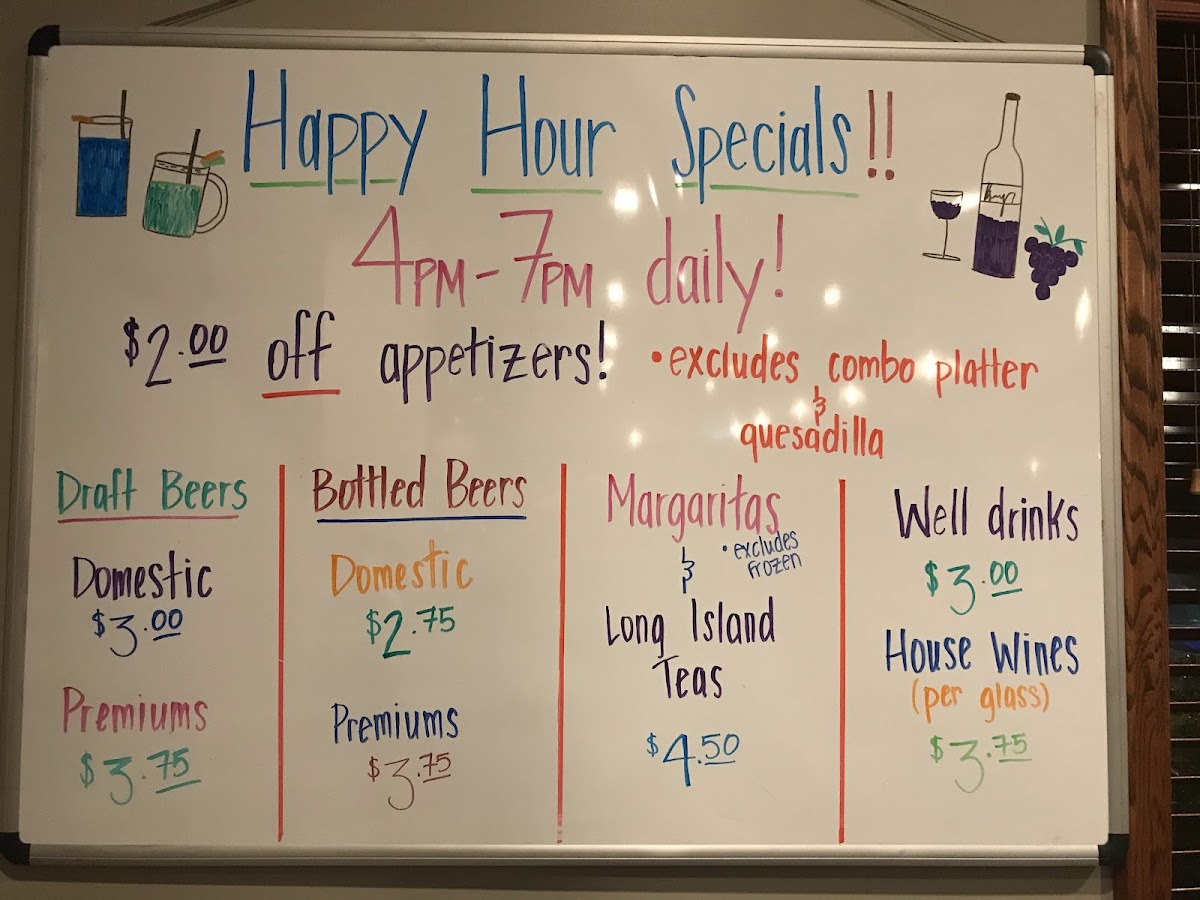 Happy Hour Specials!!
4PM-7PM daily!
$2.00 off appetizers!
•excludes combo platter
&
quesadilla
Draft Beers
Domestic
$3.00
Premiums
$3.75
Bottled Beers
Domestic
$2.75
Premiums
$3.75
Margaritas
&
•excludes
frozen
Long Island
Teas
$4.50
Well drinks
$3.00
House Wines
(per glass)
$3.75